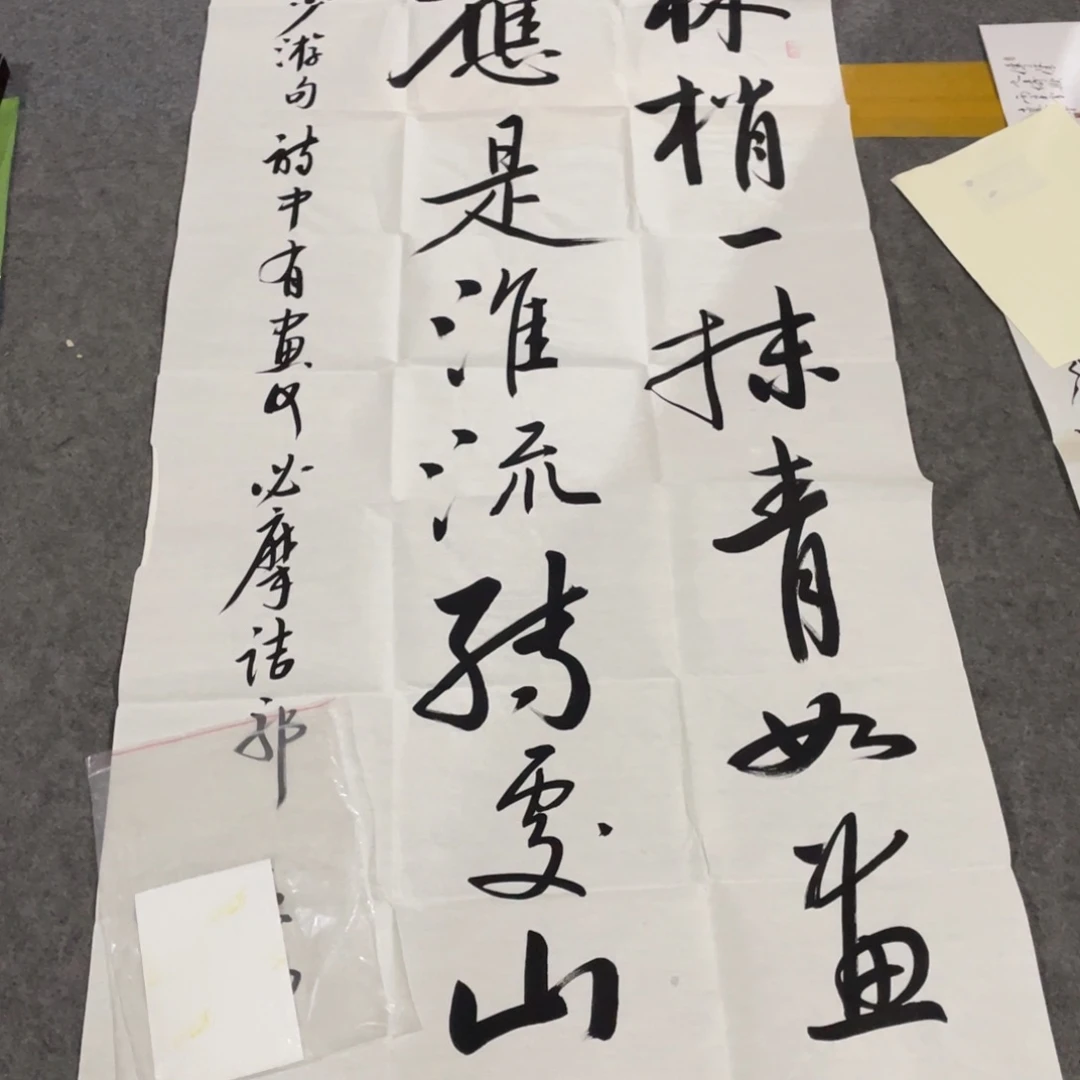 林梢一抹青如畫
應是淮流轉處山
少游句 詩中有畫 必摩詰 郭